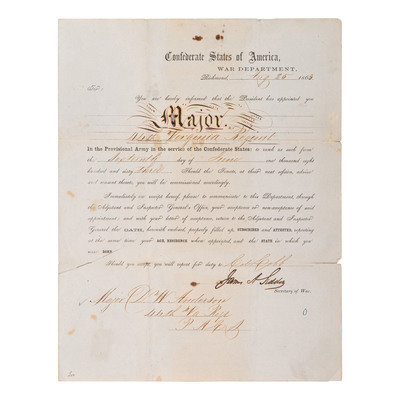 Confederate States of America,
WAR DEPARTMENT,
Richmond, Aug 26 1863
Sir:
You are hereby informed that the President has appointed you
Major.
44th Virginia Regiment
In the Provisional Army in the service of the Confederate States: to rank as such from
the Sixteenth day of June one thousand eight
hundred and sixty three. Should the Senate, at their next session, advise
and consent thereto, you will be commissioned accordingly.
Immediately on receipt hereof, please to communicate to this Department, through
the Adjutant and Inspector General's Office, your acceptance or non-acceptance of said
appointment; and with your letter of acceptance, return to the Adjutant and Inspector
General the OATH, herewith enclosed, properly filled up, SUBSCRIBED and ATTESTED, reporting
at the same time your AGE, RESIDENCE when appointed, and the STATE in which you
were BORN.
Should you accept, you will report for duty to
James A Seddon
Secretary of War.
Major D. W. Anderson
44th Va Regt
P. A. C. S.